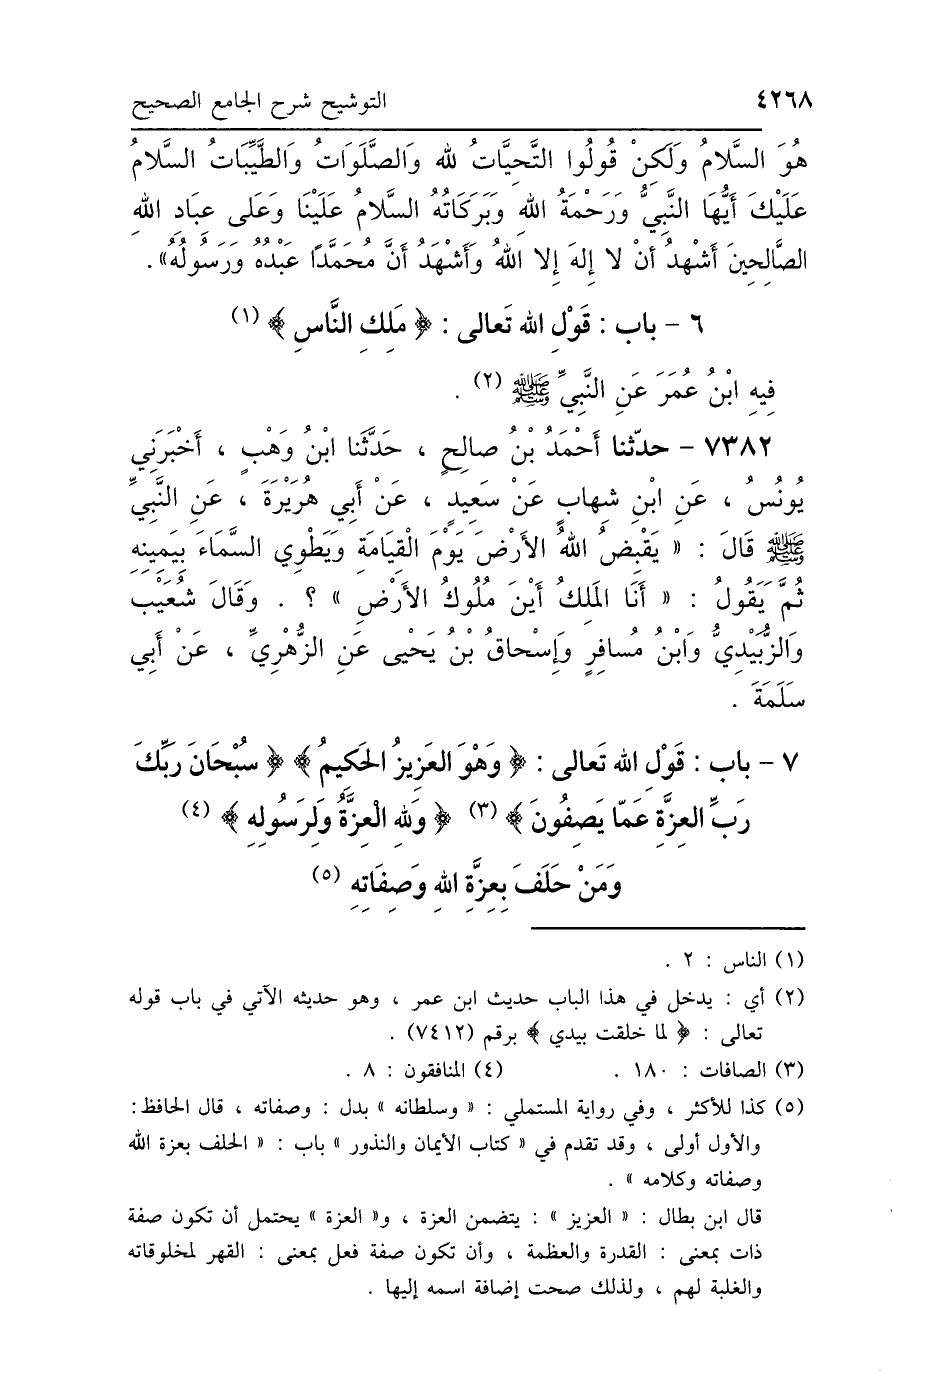 ٤٢٦٨ التوشيح شرح الجامع الصحيح
هُوَ السَّلَامُ وَلَكِنْ قُولُوا التَّحِيَّاتُ لله وَالصَّلَوَاتُ وَالطَّيِّبَاتُ السَّلَامُ
عَلَيْكَ أَيُّهَا النَّبِيُّ وَرَحْمَةُ اللهِ وَبَرَكَاتُهُ السَّلَامُ عَلَيْنَا وَعَلَى عِبَادِ اللهِ
الصَّالِحِينَ أَشْهَدُ أَنْ لا إِلهَ إِلا اللهُ وَأَشْهَدُ أَنَّ مُحَمَّدًا عَبْدُهُ وَرَسُولُهُ» .
٦ - باب : قَوْلِ الله تَعالى : ﴿ مَلِكِ النَّاسِ ﴾ (١)
فِيهِ ابْنُ عُمَرَ عَنِ النَّبِيِّ ﷺ (٢) .
٧٣٨٢ - حدّثنا أَحْمَدُ بْنُ صالِحٍ ، حَدَّثَنا ابْنُ وَهْبٍ ، أَخْبَرَنِي
يُونُسُ ، عَنِ ابْنِ شهابٍ عَنْ سَعِيدٍ ، عَنْ أَبِي هُرَيْرَةَ ، عَنِ النَّبِيِّ
ﷺ قَالَ : « يَقْبِضُ اللهُ الأَرْضَ يَوْمَ الْقِيَامَةِ وَيَطْوِي السَّمَاءَ بِيَمِينِهِ
ثُمَّ يَقُولُ : « أَنَا المَلِكُ أَيْنَ مُلُوكُ الأَرْضِ » ؟ . وَقَالَ شُعَيْبٌ
وَالزُّبَيْدِيُّ وَابْنُ مُسافِرٍ وَإِسْحاقُ بْنُ يَحْيى عَنِ الزُّهْرِيِّ ، عَنْ أَبِي
سَلَمَةَ .
٧ - باب : قَوْلِ الله تَعالى : ﴿ وَهْوَ العَزِيزُ الحَكِيمُ ﴾ ﴿ سُبْحَانَ رَبِّكَ
رَبِّ العِزَّةِ عَمّا يَصِفُونَ ﴾ (٣) ﴿ وَلله الْعِزَّةُ وَلِرَسُولِهِ ﴾ (٤)
وَمَنْ حَلَفَ بِعِزَّةِ اللهِ وَصِفَاتِهِ (٥)
(١) الناس : ٢ .
(٢) أي : يدخل في هذا الباب حديث ابن عمر ، وهو حديثه الآتي في باب قوله
تعالى : ﴿ لما خلقت بيدي ﴾ برقم (٧٤١٢) .
(٣) الصافات : ١٨٠ . (٤) المنافقون : ٨ .
(٥) كذا للأكثر ، وفي رواية المستملي : « وسلطانه » بدل : وصفاته ، قال الحافظ :
والأول أولى ، وقد تقدم في « كتاب الأيمان والنذور » باب : « الحلف بعزة الله
وصفاته وكلامه » .
قال ابن بطال : « العزيز » : يتضمن العزة ، و« العزة » يحتمل أن تكون صفة
ذات بمعنى : القدرة والعظمة ، وأن تكون صفة فعل بمعنى : القهر لمخلوقاته
والغلبة لهم ، ولذلك صحت إضافة اسمه إليها .